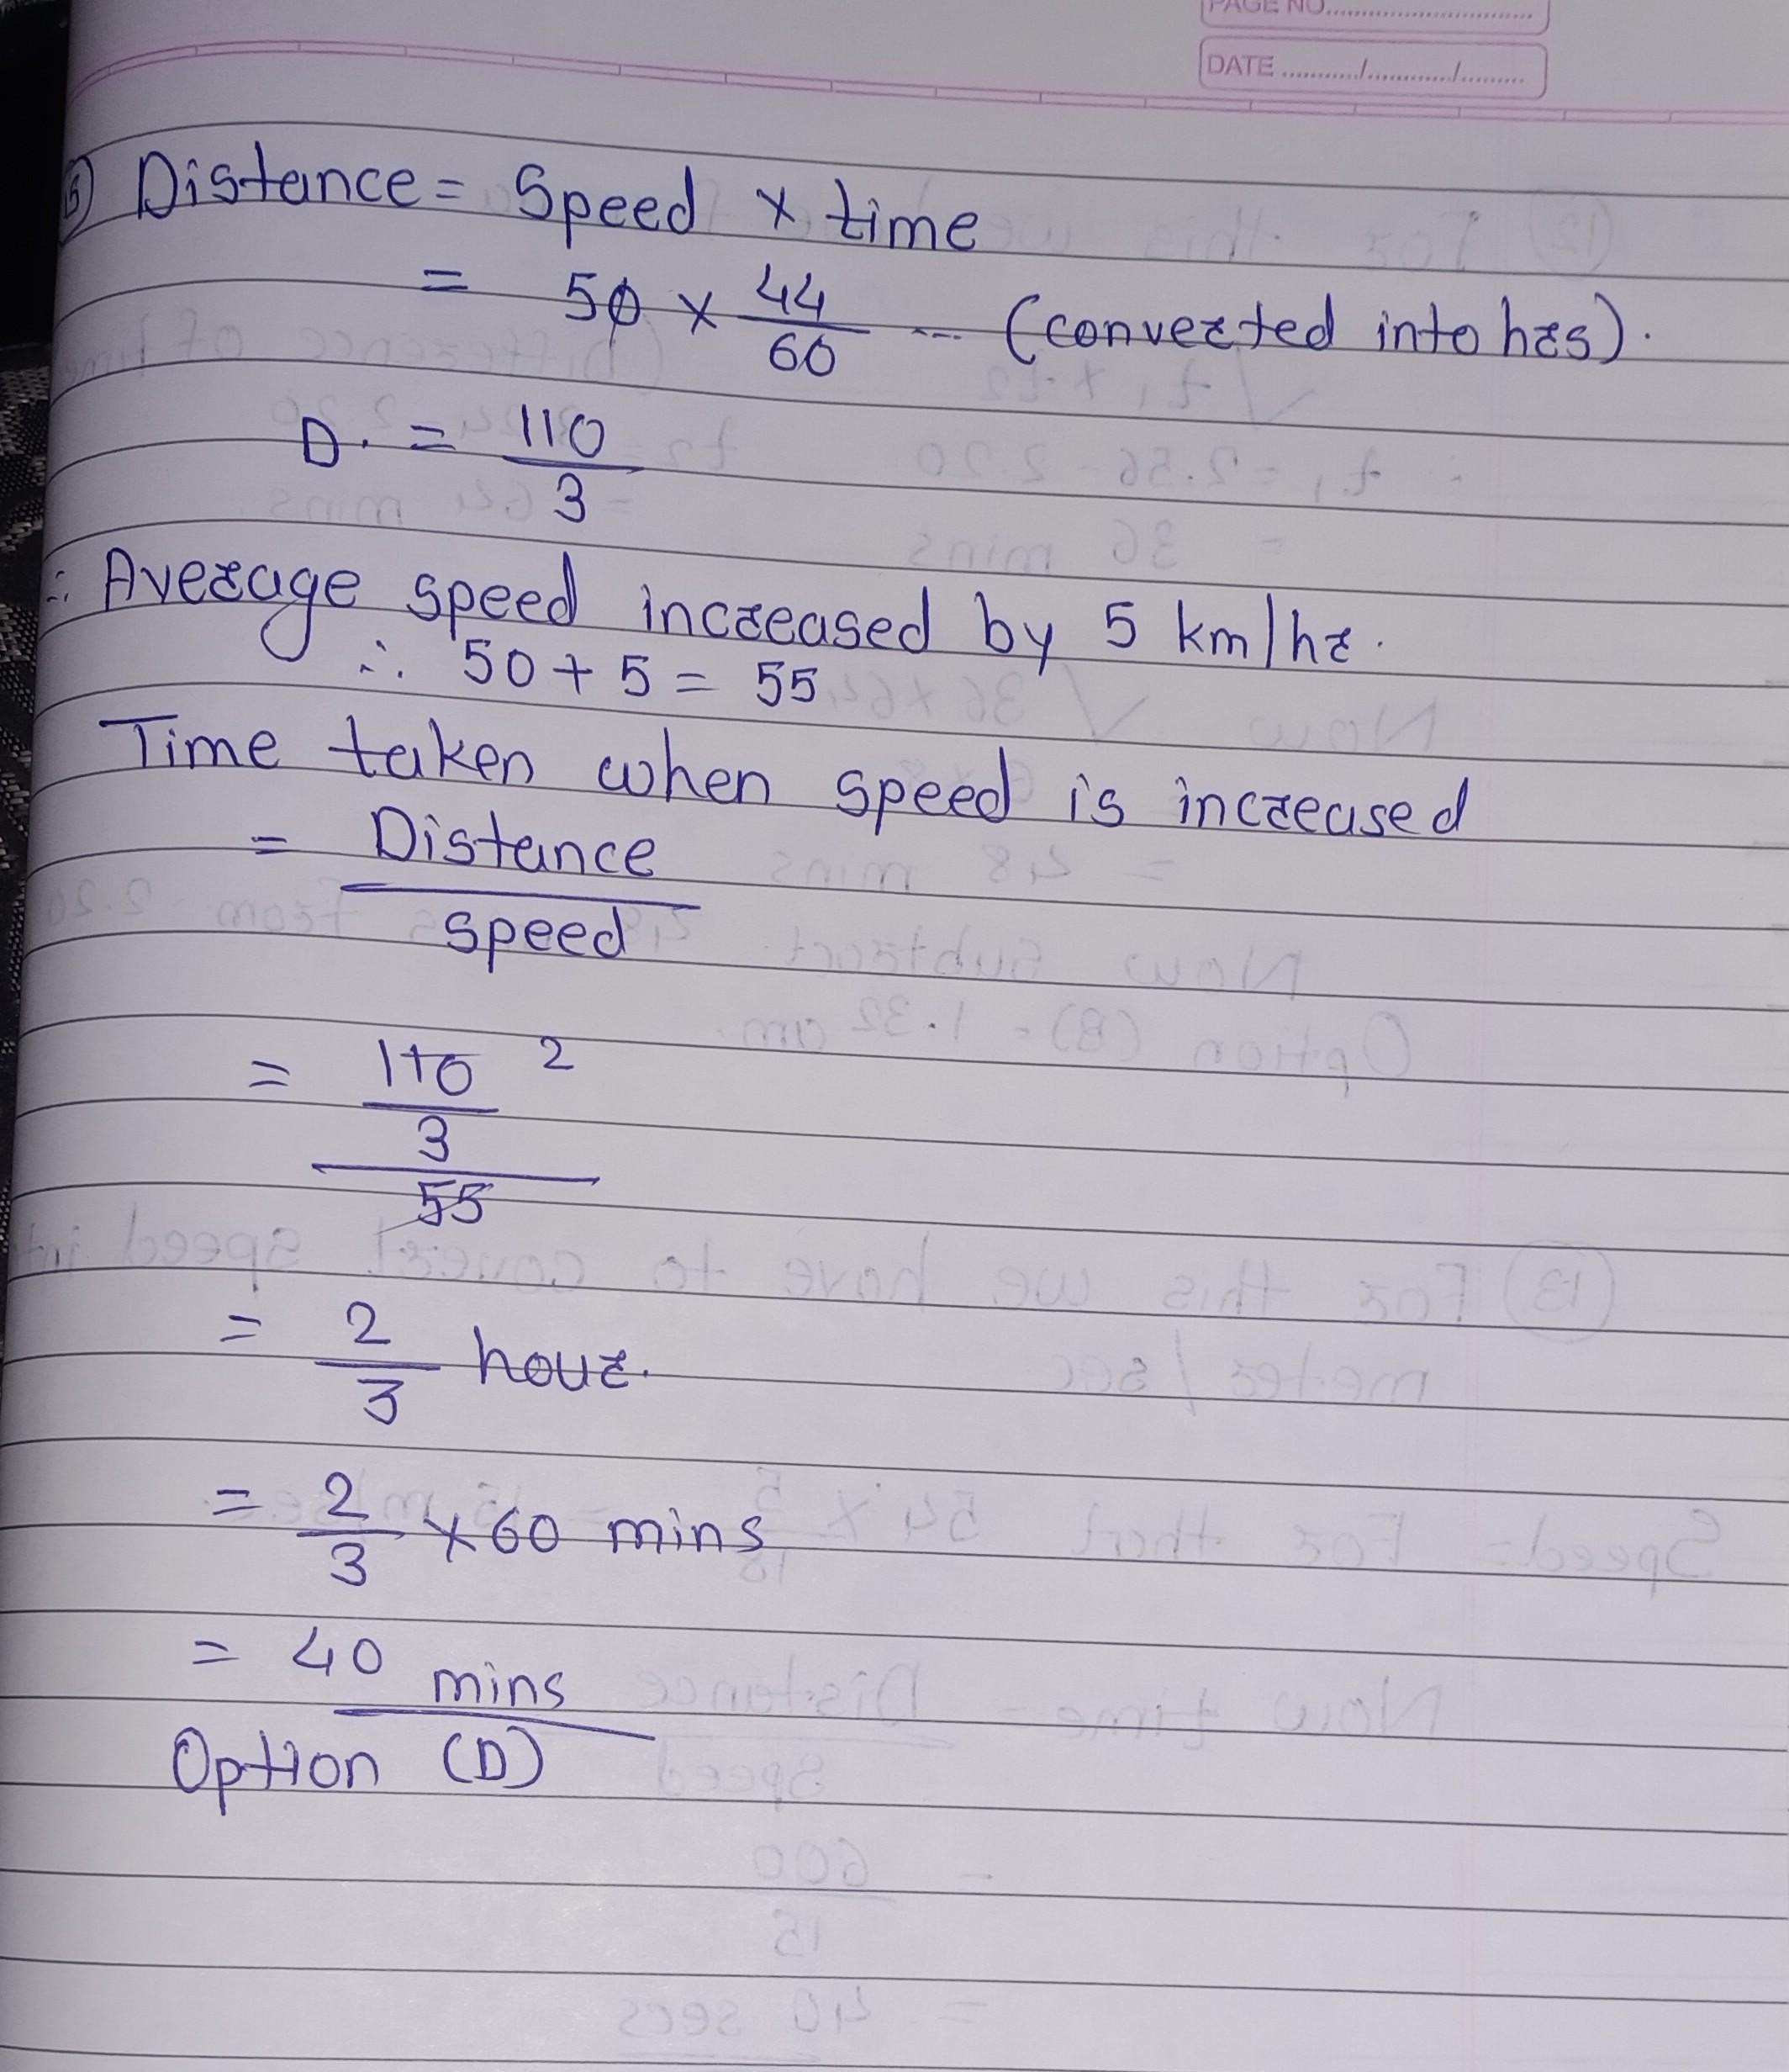 PAGE NO.
DATE ........../............/.........
Distance = Speed × time
= 50 × 44/60 --- (converted into hrs).
D. = 110/3
∴ Average speed increased by 5 km/hr.
∴ 50 + 5 = 55
Time taken when speed is increased
= Distance
speed
= 110 2
3
55
= 2/3 hour.
= 2/3 × 60 mins
= 40 mins
Option (D)